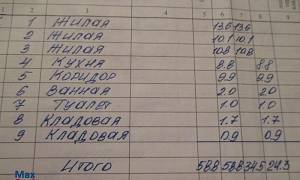 1 Жилая 13.6 13.6
2 Жилая 10.1 10.1
3 Жилая 10.8 10.8
4 Кухня 8.8 8.8
5 Коридор 9.9 9.9
6 Ванная 2.0 2.0
7 Туалет 1.0 1.0
8 Кладовая 1.7 1.7
9 Кладовая 0.9 0.9
Итого 58.8 58.8 34.5 24.3
Max